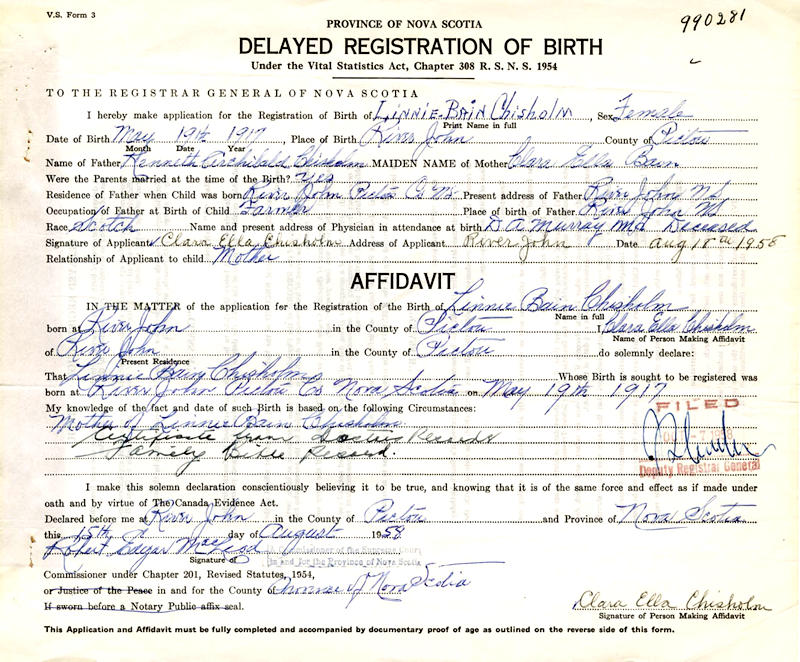 V.S. Form 3
990281
PROVINCE OF NOVA SCOTIA
DELAYED REGISTRATION OF BIRTH
Under the Vital Statistics Act, Chapter 308 R. S. N. S. 1954
TO THE REGISTRAR GENERAL OF NOVA SCOTIA
I hereby make application for the Registration of Birth of LINNIE BAIN CHISHOLM, Sex Female
Print Name in full
Date of Birth May 19th 1917, Place of Birth River John County of Pictou
Month Date Year
Name of Father Kenneth Archibald Chisholm MAIDEN NAME of Mother Clara Ella Bain
Were the Parents married at the time of the Birth? Yes
Residence of Father when Child was born River John Pictou Co NS Present address of Father River John NS
Occupation of Father at Birth of Child Farmer Place of birth of Father River John NS
Race Scotch Name and present address of Physician in attendance at birth D. A. Murray MD Deceased
Signature of Applicant Clara Ella Chisholm Address of Applicant River John Date Aug 18th 1958
Relationship of Applicant to child Mother
AFFIDAVIT
IN THE MATTER of the application for the Registration of the Birth of Linnie Bain Chisholm
Name in full
born at River John in the County of Pictou I, Clara Ella Chisholm
Name of Person Making Affidavit
of River John in the County of Pictou do solemnly declare:
Present Residence
That Linnie Bain Chisholm Whose Birth is sought to be registered was
born at River John Pictou Co Nova Scotia on May 19th 1917
My knowledge of the fact and date of such Birth is based on the following Circumstances:
Mother of Linnie Bain Chisholm
Certificate from Doctors Records
Family Bible Record.
FILED
Deputy Registrar General
I make this solemn declaration conscientiously believing it to be true, and knowing that it is of the same force and effect as if made under
oath and by virtue of The Canada Evidence Act.
Declared before me at River John in the County of Pictou and Province of Nova Scotia
this 15th day of August 1958
Robert Edgar MacLeod
Signature of
A Commissioner of the Supreme Court
in and for the Province of Nova Scotia
Commissioner under Chapter 201, Revised Statutes, 1954,
or Justice of the Peace in and for the County of Province of Nova Scotia
If sworn before a Notary Public affix seal.
Clara Ella Chisholm
Signature of Person Making Affidavit
This Application and Affidavit must be fully completed and accompanied by documentary proof of age as outlined on the reverse side of this form.